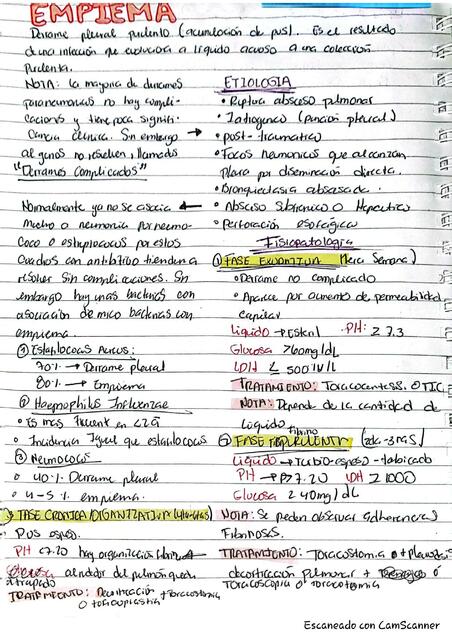 EMPIEMA
Derrame pleural purulento (acumulación de pus). Es el resultado
de una infección que evoluciona a líquido acuoso a una colección
purulenta.
NOTA: la mayoría de derrames
paraneumonicos no hay compli-
caciones y tiene poca signifi-
cancia clínica. Sin embargo
algunos no resuelven, llamados
"Derrames Complicados"
Normalmente ya no se asocia
mucho a neumonía por neumo-
coco o estreptococos por estos
cuadros con antibiótico tienden a
resolver sin complicaciones. Sin
embargo hay unas bacterias con
asociación de
empiema.
① Estafilococo Aureus:
70% → Derrame pleural
80% → Empiema
② Haemophilus Influenzae
• Es mas frecuent en <2a
• Incidencia Igual que estafilococos
③ Neumococo
• 40% Derrame pleural
• 4-5% empiema.
ETIOLOGIA
• Ruptura absceso pulmonar
• Iatrogenico (punción pleural)
• post-traumatico
• Focos neumonicos que alcanzan
pleura por diseminación directa.
• Bronquiectasia abscesada.
• Absceso Subfrenico o Hepatico
• Perforación esofágica
Fisiopatología
① FASE EXUDATIVA (1era Semana)
• Derrame no complicado
• Aparece por aumento de permeabilidad
capilar
Líquido → Esteril PH: ≥ 7.3
Glucosa >60mg/dL
LDH ≤ 500 IU/L
TRATAMIENTO: Toracocentesis O TIC
NOTA: Depende de la cantidad de
líquido
② FASE FIBROPURULENTA (2da-3 )
Líquido → Turbio-espeso-tabicado
PH → 7.20 LDH ≥ 1000
Glucosa ≥ 40mg/dL
NOTA: Se pueden observar adherencias
Fibrinosas.
TRATAMIENTO: Toracostomia
decorticación pulmonar +
toracoscopia O toracotomia
③ FASE CRONICA/ORGANIZATIVA
• Pus espeso.
PH <7.20 hay organización
alrededor del pulmón queda
atrapado
TRATAMIENTO: Decorticación + toracostomia
O toracoplastia
Escaneado con CamScanner